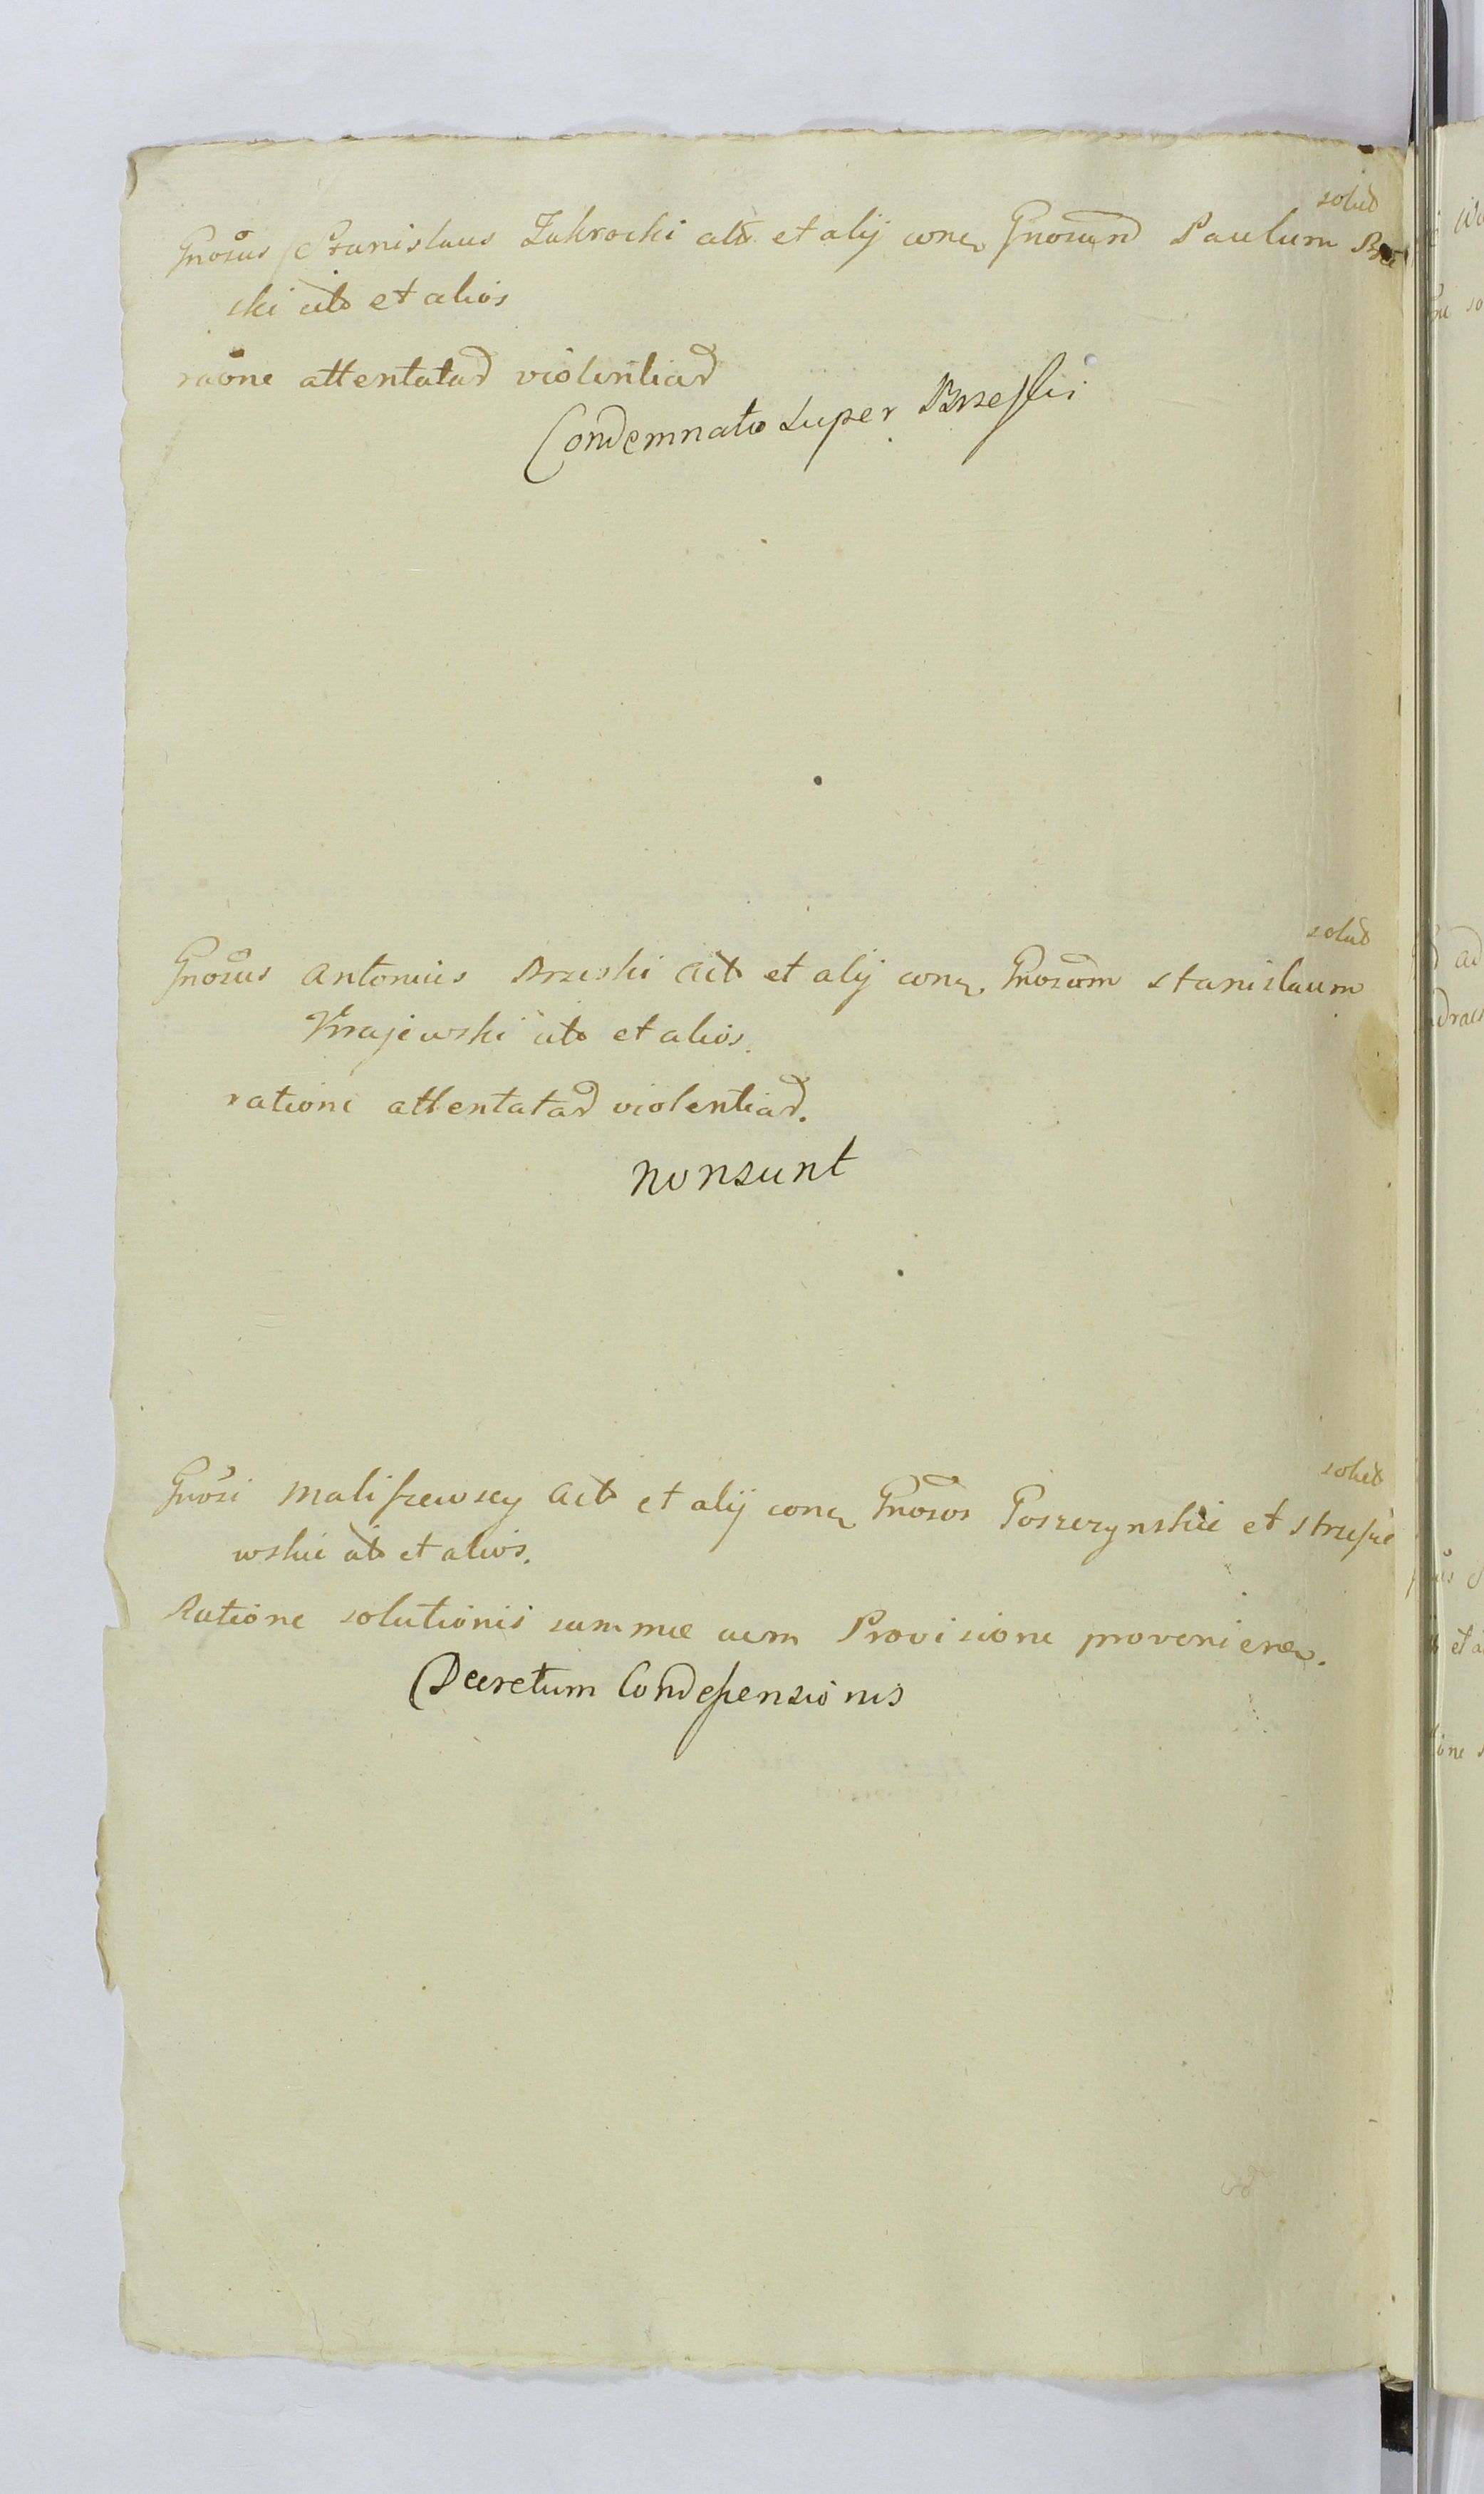 solut
Gnosus Stanislaus Zakrocki act et alij conq Gnosum Paulum Brze
ski cit et alios
raone attentatar violentiar
Condemnata super Brzeskii
solut
Gnosus Antonius Brzeski Act et alij conq Gnosum Stanislaum
Krajewski cit et alios.
ratione attentatar violentiar.
non sunt
solut
Gnosi Maliszewscy Act et alij conq Gnosos Goszczynskie et Strusze
wskie cit et alios.
Ratione solutionis summae cum Provisione
Decretum Condescensionis